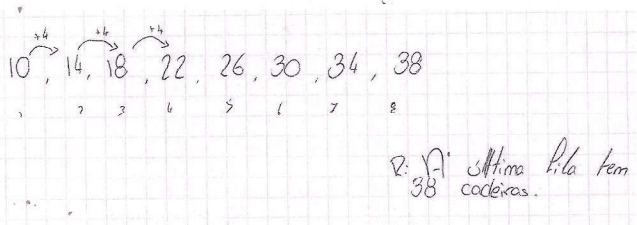 +4 +4 +4
10, 14, 18, 22, 26, 30, 34, 38
1 2 3 4 5 6 7 8
R: Nº última fila tem
38 cadeiras.